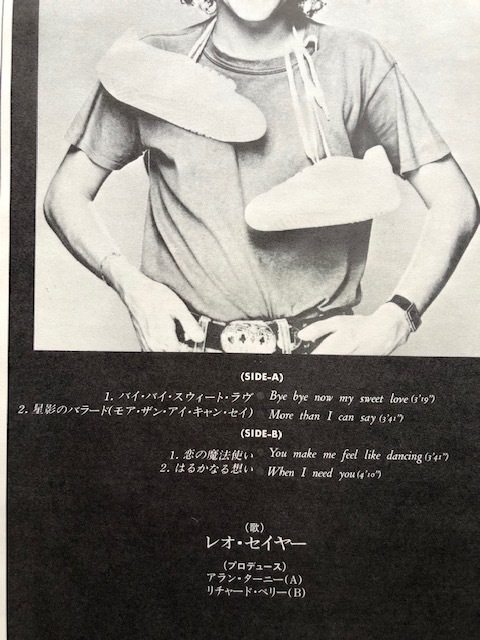 (SIDE-A)
1. バイ・バイ・スウィート・ラヴ Bye bye now my sweet love (3'19")
2. 星影のバラード(モア・ザン・アイ・キャン・セイ) More than I can say (3'41")
(SIDE-B)
1. 恋の魔法使い You make me feel like dancing (3'41")
2. はるかなる想い When I need you (4'10")
(歌)
レオ・セイヤー
(プロデュース)
アラン・ターニー(A)
リチャード・ペリー(B)